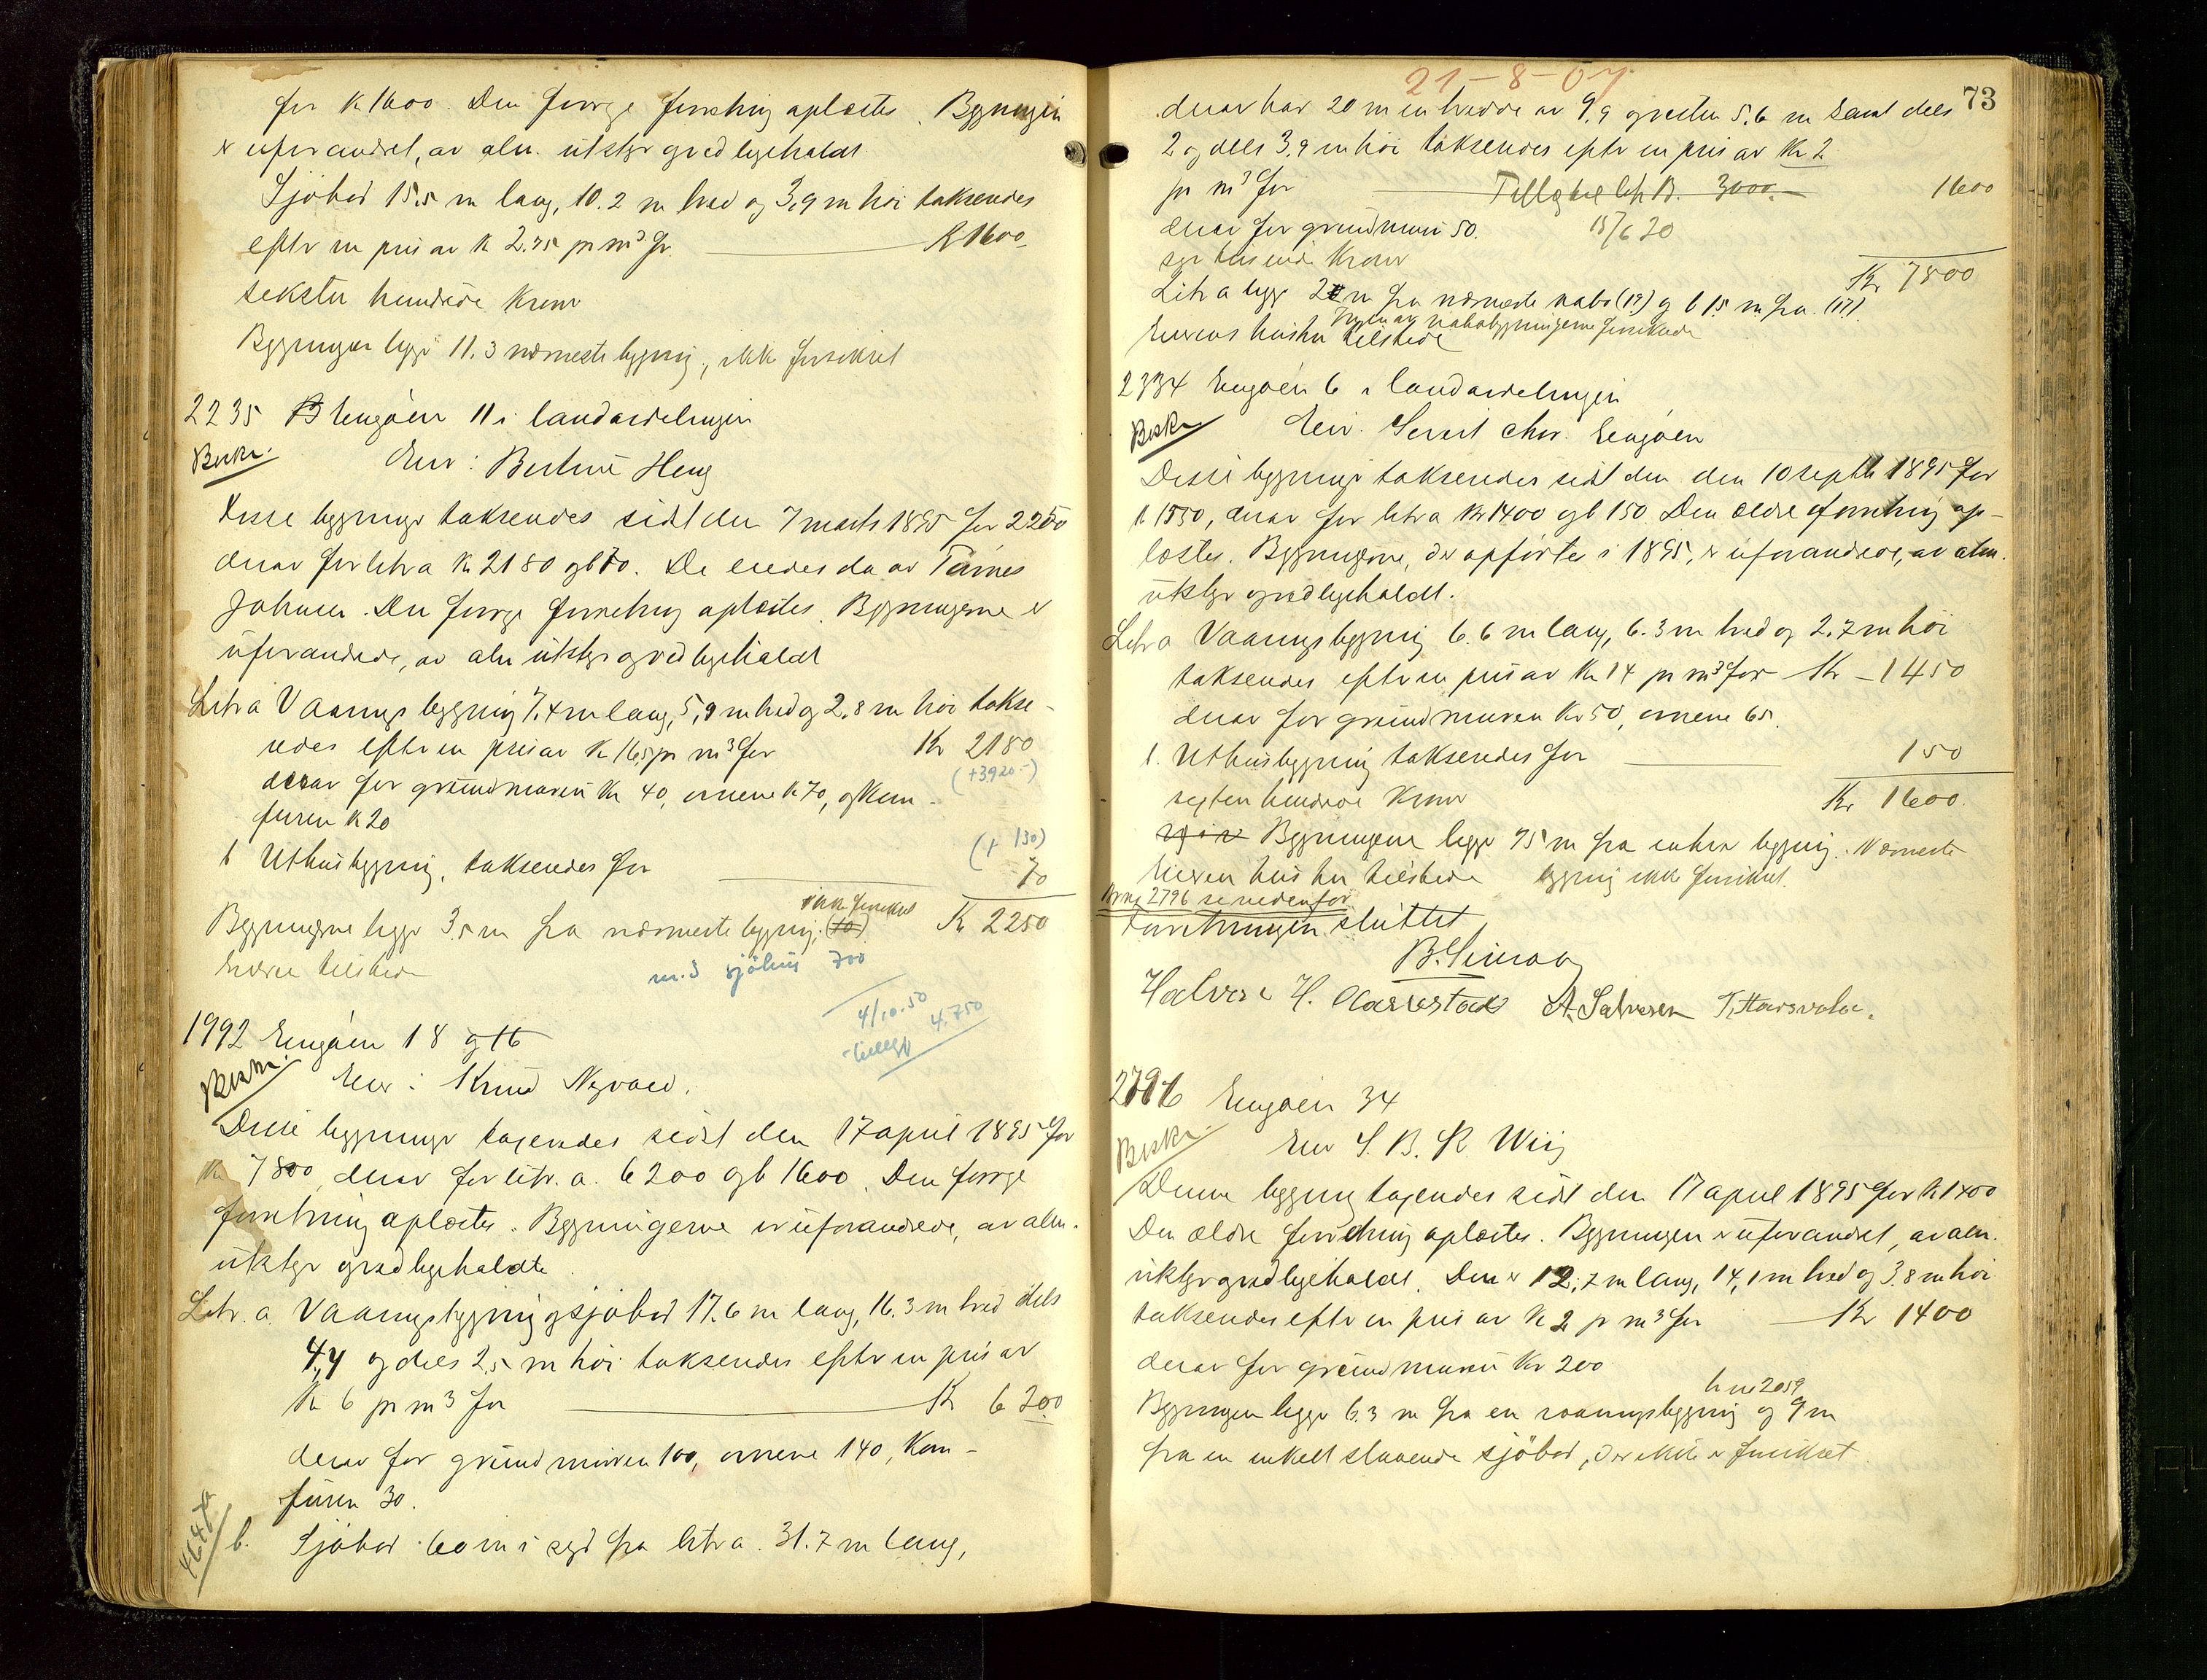 for K 1600. Den forrige forretning oplæstes. Bygningen
er uforandret, av alm. utstyr og vedligeholdt
Sjöbod 15.5 m lang, 10.2 m bred og 3,9 m höi taksendes
efter en pris av K 2.75 pr m³ for K 1600
seksten hundrede Kroner
Bygningen ligger 11.3 nærmeste bygning, ikke forsikret
2235 Engöen 11 i landavdelingen
Beskr. Eier: Bertine Heng
Disse bygninger taksendes sidst den 7 marts 1895 for 2250
derav for litr a K 2180 og b 70. De eiedes da av
Johnsen. Den forrige forretning oplæstes. Bygningerne er
uforandrede, av alm utstyr og vedligeholdt
Litr a Vaaningsbygning 7.4 m lang, 5,9 m bred og 2.8 m höi takse-
redes efter en pris av K 16,5 pr m³ for Kr 2180
(+3920-)
derav for grundmuren Kr 40, ovnene K 70, og Kom-
furen K 20
(+ 130)
b Uthusbygning, taksendes for 70
ikke forsikret
Bygningerne ligger 3.5 m fra nærmeste bygning, (10) K 2250
Eieren tilstede
nr. 3 sjöhus 700
4/10.50 4.750
tillegg
1992 Engöen 18 og 16
Beskr. Eier: Knud Nyvold.
Disse bygninger taxendes sidst den 17 april 1895 for
Kr 7800, derav for litr. a. 6200 og b 1600. Den forrige
forretning oplæstes. Bygningerne er uforandrede, av alm.
utstyr og vedligeholdte
Litr. a. Vaaningsbygning og sjöbod 17.6 m lang, 16.3 m bred dels
4,4 og dels 2,5 m höi taksendes efter en pris av
Kr 6 pr m³ for K 6200
derav for grundmuren 100, ovnene 140, Kom-
furen 30.
b. Sjöbod 60 m i syd fra litr a. 31.7 m lang,
21-8-07
73
derav har 20 m en bredde av 9,9 og resten 5.6 m samt dels
2 og dels 3.9 m höi taksendes efter en pris av Kr 2
pr m³ for Tillegg 3000.- 1600
derav for grundmuren 50. 15/6 20
syv tusinde Kroner Kr 7800
Litr a ligger 2 m fra nærmeste nabo (19) og b 15 m fra (17)
Ingen av nabobygningerne forsikrede
Eierens hustru tilstede
2334 Engöen 6 i landavdelingen
Beskr Eier. Sivert Chr. Engöen
Disse bygninger taksendes sidst den den 10 septbr 1895 for
K 1550, derav for litr a Kr 1400 og b 150. Den ældre forretning op-
læstes. Bygningerne, der opförtes i 1895, er uforandrede, av alm.
utstyr og vedligeholdt.
Litr a Vaaningsbygning 6.6 m lang, 6.3 m bred og 2.7 m höi
taksendes efter en pris av Kr 14 pr m³ for Kr 1450
derav for grundmuren Kr 50, ovnene 65.
b. Uthusbygning taksendes for 150
seksten hundrede Kroner Kr 1600.
Bygningerne ligger 75 m fra enhver bygning. Nærmeste
Eieren hustru tilstede bygning ikke forsikret.
Br. No 2796 se nedenfor
Forretningen sluttet
B. Simon
Halvor H. Aarrestad A. Salvesen T. Haarsvola.
2796 Engöen 34
Beskr. Eier S. B. K. Wiig
Denne bygning taxendes sidst den 17 april 1895 for K 1400
Den ældre forretning oplæstes. Bygningen er uforandret, av alm.
utstyr og vedligeholdt. Den er 12,7 m lang, 14,1 m bred og 3.8 m höi
taksendes efter en pris av K 2 pr m³ for Kr 1400
derav for grundmuren Kr 200
br no 2059
Bygningen ligger 6.3 m fra en vaaningsbygning og 9 m
fra en enkelt staaende sjöbod, der ikke er forsikret